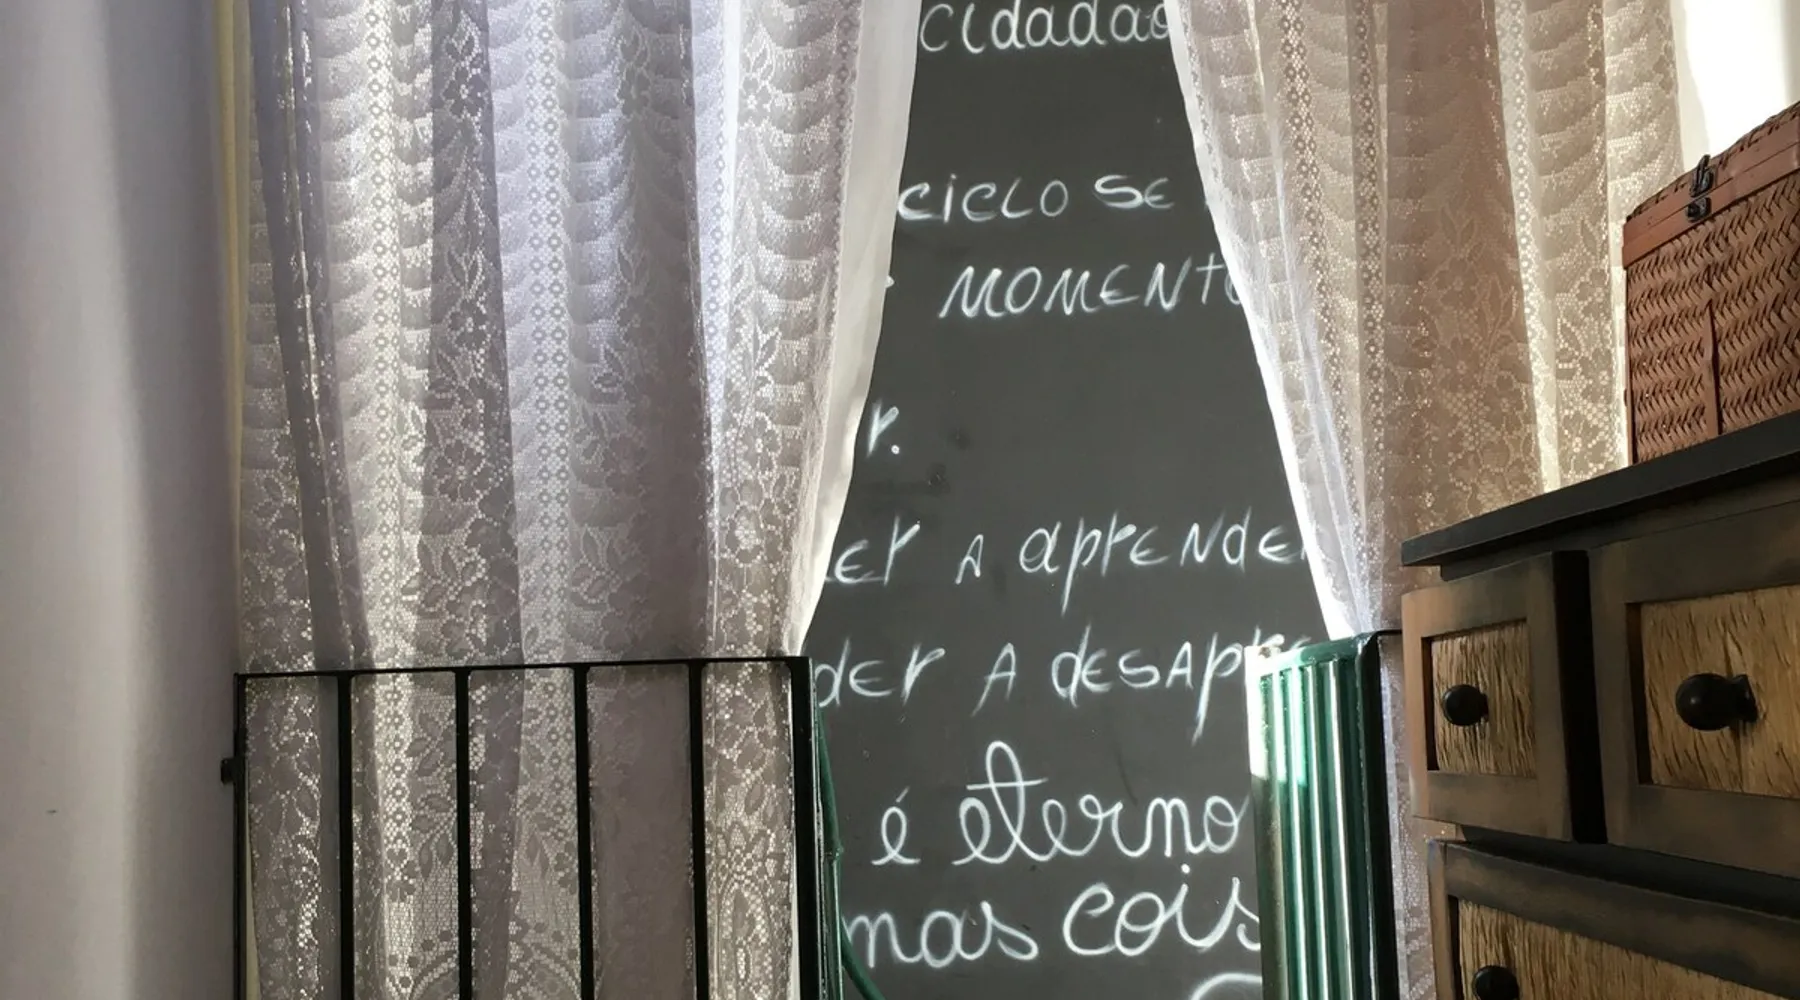 cidadão
ciclo se
momento
r.
er a aprender
der a desapre
é eterno
mas cois